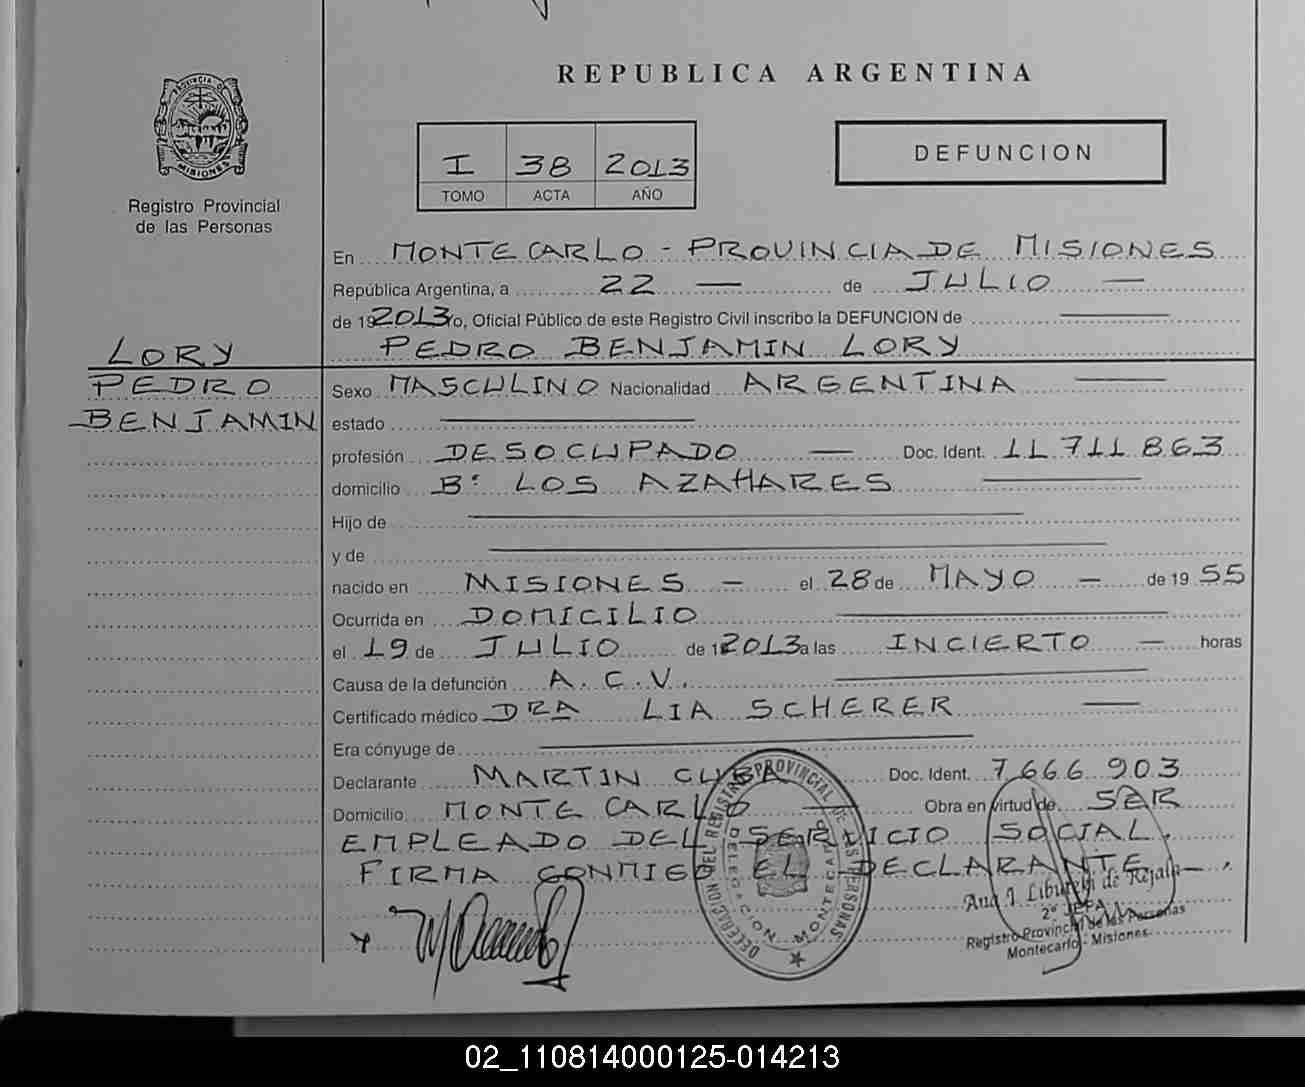 REPUBLICA ARGENTINA
PROVINCIA DE MISIONES
Registro Provincial
de las Personas
I 38 2013
TOMO ACTA AÑO
DEFUNCION
En MONTECARLO - PROVINCIA DE MISIONES
República Argentina, a 22 — de JULIO —
de 19 2013 Yo, Oficial Público de este Registro Civil inscribo la DEFUNCION de —
PEDRO BENJAMIN LORY
LORY
PEDRO
BENJAMIN
Sexo MASCULINO Nacionalidad ARGENTINA —
estado —
profesión DESOCUPADO — Doc. Ident. 11 711 863
domicilio Bº LOS AZAHARES —
Hijo de —
y de —
nacido en MISIONES — el 28 de MAYO — de 19 55
Ocurrida en DOMICILIO —
el 19 de JULIO de 1 2013 a las INCIERTO — horas
Causa de la defunción A. C. V. —
Certificado médico DRA LIA SCHERER —
Era cónyuge de —
Declarante MARTIN CUBA Doc. Ident. 7 666 903
Domicilio MONTE CARLO — Obra en virtud de SER
EMPLEADO DEL SERVICIO SOCIAL.
FIRMA CONMIGO EL DECLARANTE —.
DELEGACION DEL REGISTRO PROVINCIAL DE LAS PERSONAS
DELEGACION MONTECARLO
2º JEFA
Registro Provincial de las Personas
Montecarlo - Misiones
02_110814000125-014213